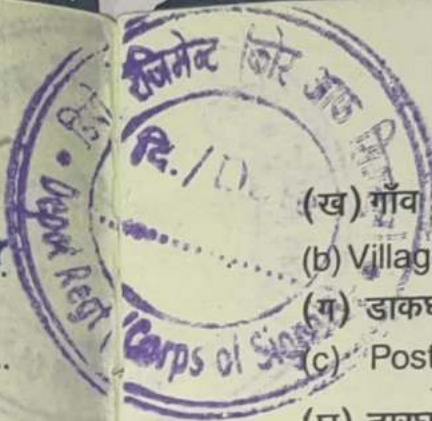 रेजिमेन्ट कोर आफ
दि. / D
Depot Regt Corps of Sig
(ख) गाँव
(b) Villag
(ग) डाकघ
(c) Post